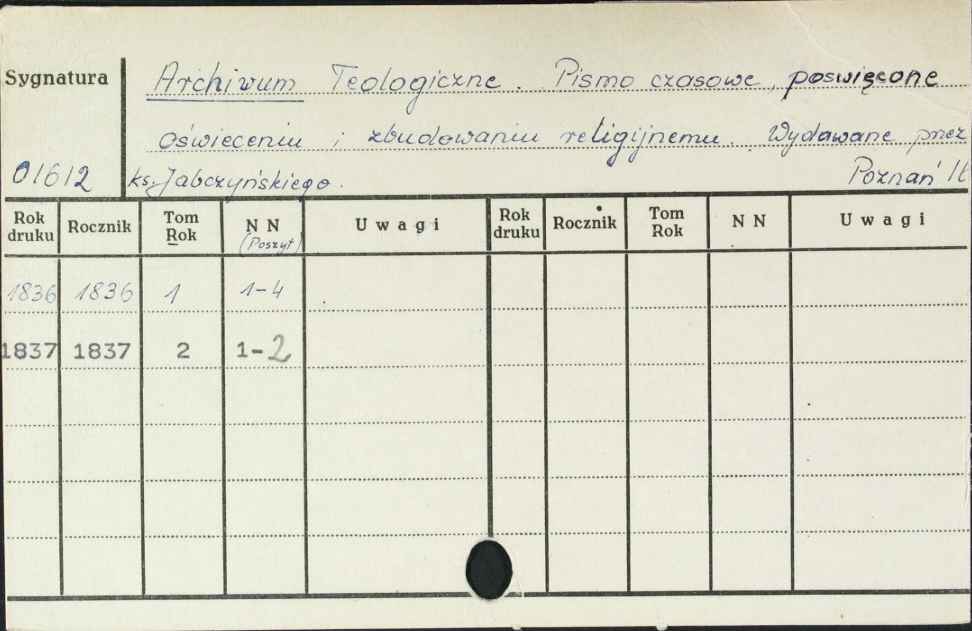 Sygnatura
Archiwum Teologiczne. Pismo czasowe, poswięcone
oświeceniu i zbudowaniu religijnemu. Wydawane przez
01612 ks. Jabczyńskiego. Poznań
Rok druku Rocznik Tom Rok NN (Poszyt) Uwagi Rok druku Rocznik Tom Rok NN Uwagi
1836 1836 1 1-4
1837 1837 2 1-2